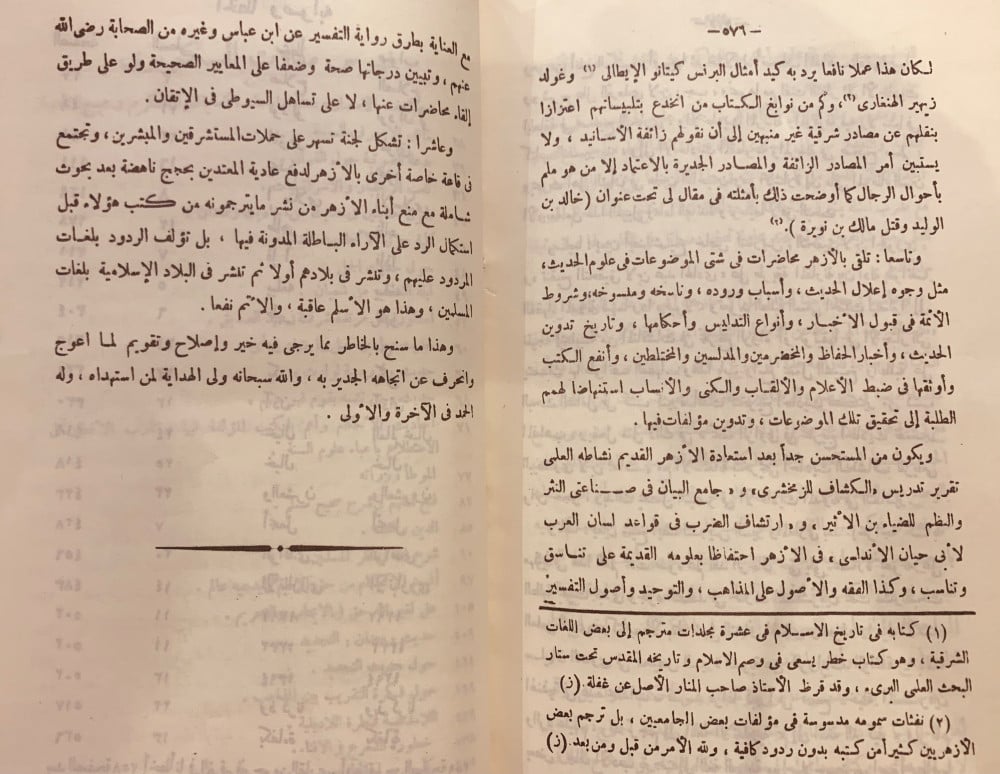 — ٥٧٦ —
لكان هذا عملا نافعا يرد به كيد أمثال البرنس كيتانو الإيطالى (١) وغولد
زيهير الهنغارى(٢)، وكم من نوابغ الكتاب من انخدع بتلبيساتهم اعتزازا
بنقلهم عن مصادر شرقية غير منبهين إلى أن نقولهم زائفة الأسانيد ، ولا
يستبين أمر المصادر الزائفة والمصادر الجديرة بالاعتماد إلا من هو ملم
بأحوال الرجال كما أوضحت ذلك بأمثلته فى مقال لى تحت عنوان ( خالد بن
الوليد وقتل مالك بن نويرة ).(٢)
وتاسعا : تلقى بالأزهر محاضرات فى شتى الموضوعات فى علوم الحديث،
مثل وجوه إعلال الحديث ، وأسباب وروده ، وناسخه ومنسوخه،وشروط
الأئمة فى قبول الأخبار ، وأنواع التدليس وأحكامها ، وتاريخ تدوين
الحديث ، وأخبار الحفاظ والمخضرمين والمدلسين والمختلطين ، وأنفع الكتب
وأوثقها فى ضبط الأعلام والألقاب والكنى والأنساب استنهاضا لهمم
الطلبة إلى تحقيق تلك الموضوعات ، وتدوين مؤلفات فيها .
ويكون من المستحسن جداً بعد استعادة الأزهر القديم نشاطه العلمى
تقرير تدريس «الكشاف للزمخشرى» و « جامع البيان فى صناعتى النثر
والنظم للضياء بن الأثير ، و « ارتشاف الضرب فى قواعد لسان العرب
لأبى حيان الأندلسى ، فى الأزهر احتفاظا بعلومه القديمة على تناسق
وتناسب ، وكذا الفقه والأصول على المذاهب ، والتوحيد وأصول التفسير
(١) كتابه فى تاريخ الاسلام فى عشرة مجلدات مترجم إلى بعض اللغات
الشرقية ، وهو كتاب خطر يسعى فى وصم الاسلام وتاريخه المقدس تحت ستار
البحث العلمى البرىء ، وقد قرظ الأستاذ صاحب المنار الأصل عن غفلة . (ز)
(٢) نفثات سمومه مدسوسة فى مؤلفات بعض الجامعيين ، بل ترجم بعض
الأزهريين كثيرا من كتبه بدون ردود كافية ، ولله الأمر من قبل ومن بعد . (ز)
مع العناية بطرق رواية التفسير عن ابن عباس وغيره من الصحابة رضى الله
عنهم ، وتبيين درجاتها صحة وضعفا على المعايير الصحيحة ولو على طريق
إلقاء محاضرات عنها ، لا على تساهل السيوطى فى الإتقان .
وعاشرا : تشكل لجنة تسهر على حملات المستشرقين والمبشرين ، وتجتمع
فى قاعة خاصة أخرى بالأزهر لدفع عادية المعتدين بحجج ناهضة بعد بحوث
شاملة مع منع أبناء الأزهر من نشر ما يترجمونه من كتب هؤلاء قبل
استكمال الرد على الآراء الباطلة المدونة فيها ، بل تؤلف الردود بلغات
المردود عليهم ، وتنشر فى بلادهم أولا ثم تنشر فى البلاد الإسلامية بلغات
المسلمين ، وهذا هو الأسلم عاقبة ، والأتم نفعا .
وهذا ما سنح بالخاطر بما يرجى فيه خير وإصلاح وتقويم لما اعوج
وانحرف عن اتجاهه الجدير به ، والله سبحانه ولى الهداية لمن استهداه ، وله
الحمد فى الآخرة والأولى .